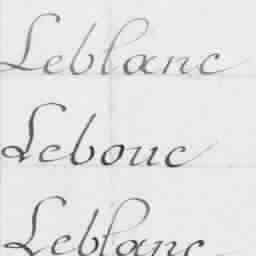 Leblanc
Lebouc
Leblanc